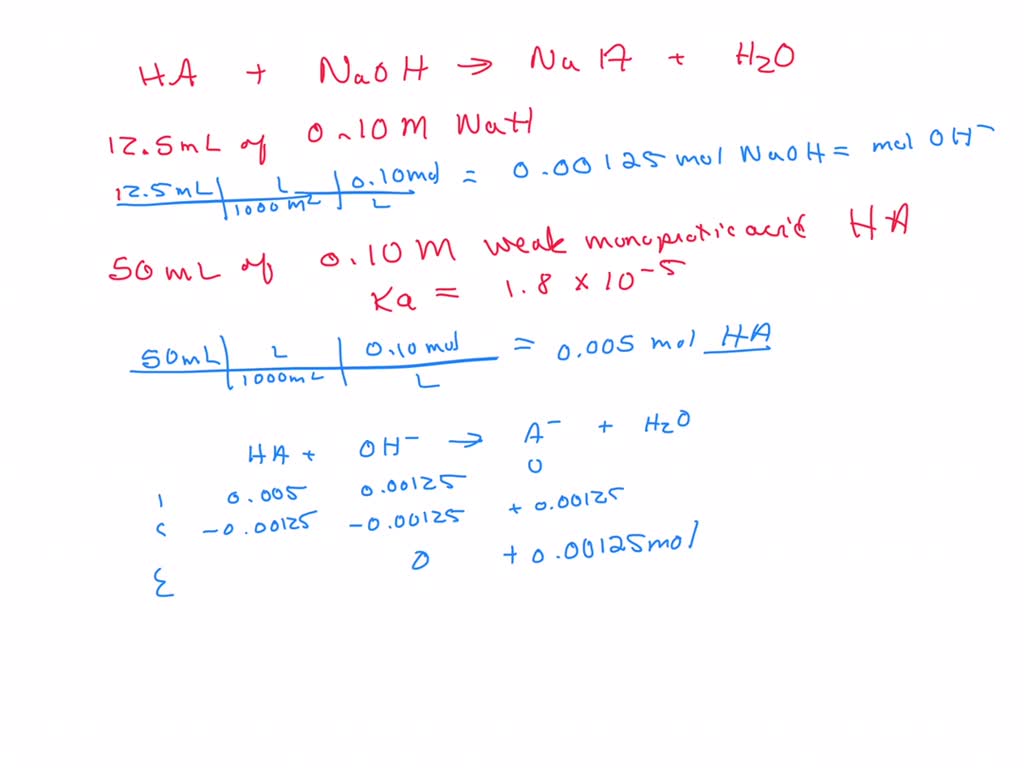 HA + NaOH → NaA + H2O
12.5mL of 0.10M NaH
12.5mL | L | 0.10mol = 0.00125 mol NaOH = mol OH⁻
1000mL | L
50mL of 0.10M weak monoprotic acid HA
Ka = 1.8 × 10⁻⁵
50mL | L | 0.10 mol = 0.005 mol HA
1000mL | L
HA + OH⁻ → A⁻ + H2O
I 0.005 0.00125 0
C -0.00125 -0.00125 + 0.00125
E 0 + 0.00125mol